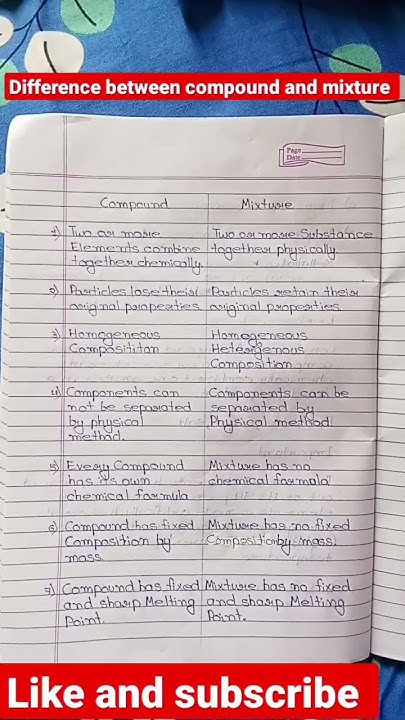 Difference between compound and mixture
Page
Date
Compound Mixture
1) Two or more Two or more Substance
Elements combine together physically
together chemically.
2) Particles lose their Particles retain their
original properties original properties
3) Homogeneous Homogeneous
Compositition Heterigenous
Composition
4) Components can Components can be
not be separated separated by
by physical Physical method
method.
5) Every Compound Mixture has no
has its own chemical formola
chemical formula
6) Compound has fixed Mixture has no fixed
Composition by Composition by mass.
mass
7) Compound has fixed Mixture has no fixed
and sharp Melting and sharp Melting
Point. Point.
Like and subscribe